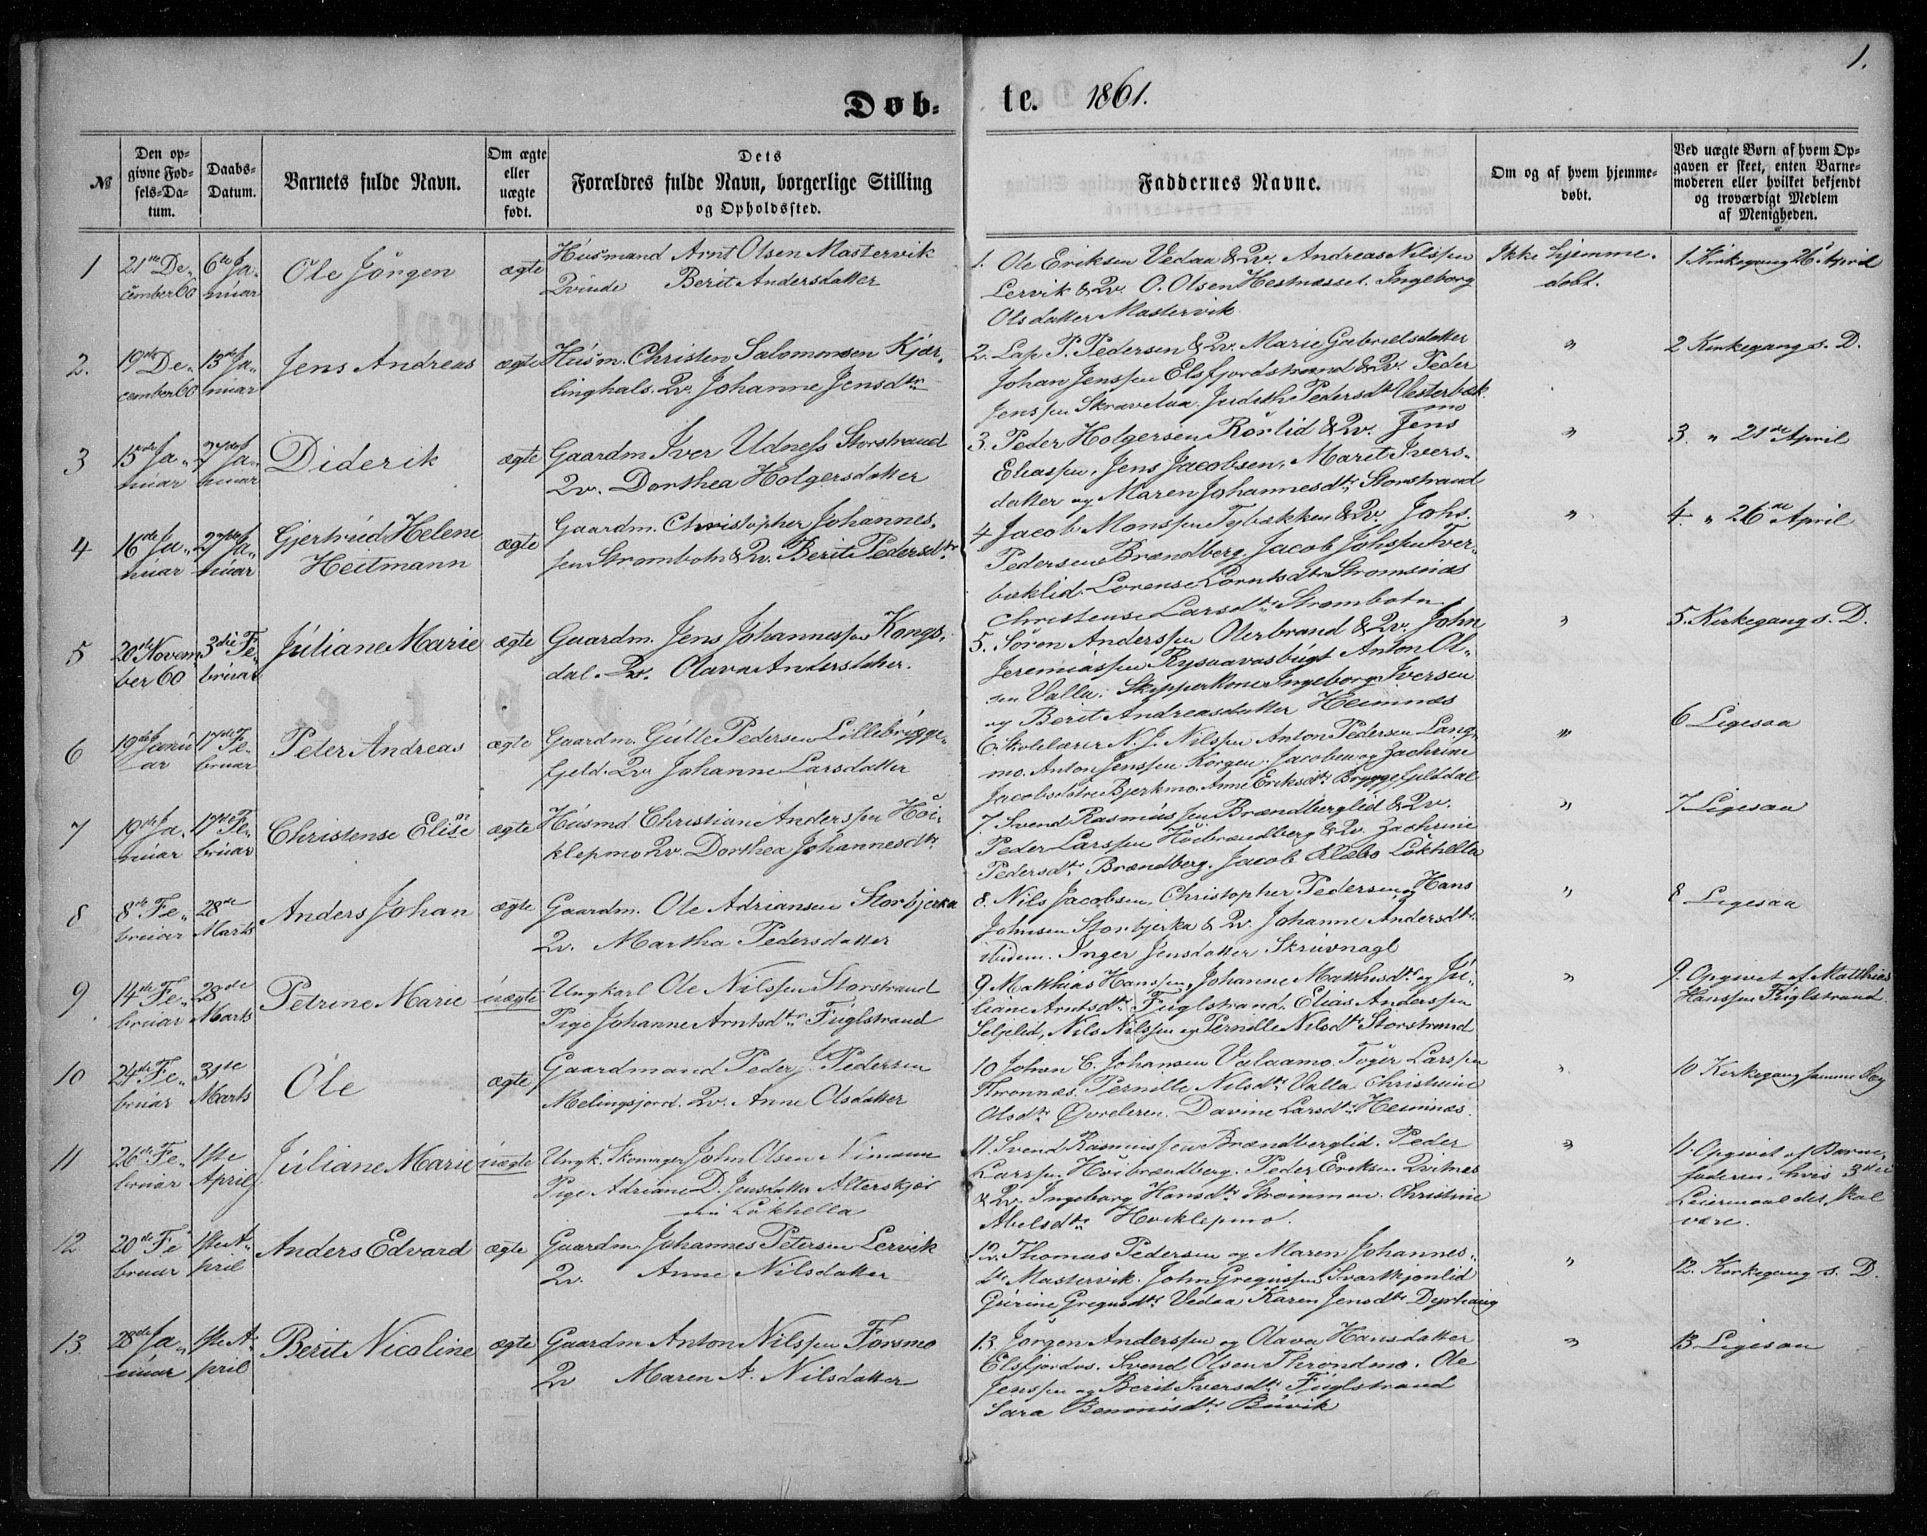 1.
Døb- te. 1861.
№
Den op-
givne Fød-
sels-Da-
tum.
Daabs-
Datum.
Barnets fulde Navn.
Om ægte
eller
uægte
født.
Dets
Forældres fulde Navn, borgerlige Stilling
og Opholdssted.
Faddernes Navne.
Om og af hvem hjemme-
døbt.
Ved uægte Børn af hvem Op-
gaven er skeet, enten Barne-
moderen eller hvilket bekjendt
og troværdigt Medlem
af Menigheden.
1
21de De-
cember 60
6te Ja-
nuar
Ole Jörgen
ægte
Husmand Arnt Olsen Mastervik
Qvinde Berit Andersdatter
1. Ole Eriksen Vedaa & Qv. Andreas Nilssen
Lervik & Qv. O. Olsen Hestnæsset. Ingeborg
Olsdatter Mastervik
Ikke hjemme-
døbt.
1 Kirkegang 26 April
2.
19de De-
cember 60
13de Ja-
nuar
Jens Andreas
ægte
Husm. Christen Salomonsen Kjær-
linghals. Qv. Johanne Jensdtr
2. Lap P. Pedersen & Qv. Marie Gabrielsdatter
Johan Jenssen Elsfjordstrand & Qv. Peder
Jenssen Skravelaa. Judith Pedersdt Vesterbæk
"
2 Kirkegang s. D.
3
15de Ja-
nuar
27de Ja-
nuar
Diderik
ægte
Gaardm Iver Udness Storstrand
Qv. Dorthea Holgersdatter
3. Peder Holgersen Rörlid & Qv. Jens
Eliassen, Jens Jacobsen, Marit Ivers-
datter og Maren Johannesdtr Storstrand
"
3. " 21de April
4
16de Ja-
nuar
27de Ja-
nuar
Gjertrud Helene
Heitmann
ægte
Gaardm. Christopher Johannes-
sen Strombotn & Qv. Berit Pedersdtr
4 Jacob Monssen Tybækken & Qv. Johs.
Pedersen Brændberg, Jacob Johssen Tver-
bæklid. Lorense Lorntsdtr Stromsnæs
Christense Larsdtr Strombotn
"
4. " 26de April
5
20de Novem-
ber 60
3die Fe-
bruar
Juliane Marie
ægte
Gaardm. Jens Johannessen Kongs-
dal. Qv. Olava Andersdatter.
5. Søren Anderssen Oterbrand & Qv. John
Jeremiassen Rysaavasbugt Anton Ol-
sen Valla. Skipperkone Ingeborg Iversen
og Berit Andreasdatter Hemnæs
"
5. Kirkegang s. D.
6
19de Janu-
ar
17de Fe-
bruar
Peter Andreas
ægte
Gaardm. Gulle Pedersen Lillebrygge-
fjeld. Qv. Johanne Larsdatter
6. Skolelærer N. J. Nilssen Anton Pedersen Lang-
mo. Anton Jenssen Korgen. Jacobea og Zachrine
Jacobsdatter Bjerkmo. Anne Eriksdtr Bryggefjelddal
"
6 Ligesaa
7
19de Ja-
nuar
17de Fe-
bruar
Christense Elise
ægte
Husmd. Christian Anderssen Höi-
klepmo Qv. Dorthea Johannesdtr.
7. Svend Rasmussen Brændberglid & Qv.
Peder Larssen Höibrændberg & Qv. Zachrine
Pedersdtr Brændberg. Jacob Klæbo Lökhella
"
7 Ligesaa
8
8de Fe-
bruar
28de
Marts
Anders Johan
ægte
Gaardm. Ole Adriansen Storbjerka
Qv. Martha Pedersdatter
8. Nils Jacobsen, Christopher Pedersen, og Hans
Johnsen Storbjerka & Qv. Johanne Andersdtr
ibidem. Inger Jensdatter Skruvnagl
"
8 Ligesaa
9
14de Fe-
bruar
28de
Marts
Petrine Marie
uægte
Ungkarl Ole Nilssen Storstrand
Pige Johanne Arntsdtr. Fuglstrand
9 Matthias Hanssen, Johanne Matthisdtr og Ju-
liane Arntsdtr Fuglstrand. Elias Anderssen
Seljelid, Nils Nilssen og Pernille Nilsdtr Storstrand
"
9. Opgivet af Matthias
Hanssen Fuglstrand.
10
24de Fe-
bruar
31te
Marts
Ole
ægte
Gaardmand Peder J. Pedersen
Melingsjord. Qv. Anne Olsdatter
10 Johan C. Johansen Valaamo. Töger Larssen
Thronnæs. Pernille Nilsdtr Valla Christine
Olsdtr Øvreleren. Davine Larsdtr Hemnæs.
"
10 Kirkegang samme Dag
11
26de Fe-
bruar
1ste
April
Juliane Marie
uægte
Ungk. Skomager John Olsen Nimoen
Pige Adriane D. Jensdatter Alterskjær
nu Lökhella
11. Svend Rasmussen Brændberglid. Peder
Larssen Höibrændberg. Peder Eriksen Qvitnæs
& Qv. Ingeborg Hansdtr Strømmen. Christine
Abelsdtr Hoiklepmo.
"
11. Opgivet af Barne-
faderen, hvis 3die
Leiermaal det skal
være.
12
20de Fe-
bruar
1ste A-
pril
Anders Edvard
ægte
Gaardm. Johannes Petersen Lervik
Qv. Anne Nilsdatter
12. Thomas Pedersen og Maren Johannes-
dtr Mastervik. John Gregussen Svartkjønlid
Gurine Gregusdtr Vedaa Karen Jensdtr Dyrhaug
"
12. Kirkegang s. D.
13
28de Ja-
nuar
1ste A-
pril
Berit Nicoline
ægte
Gaardm Anton Nilssen Forsmo
Qv Maren A. Nilsdatter
13 Jorgen Anderssen og Olava Hansdatter
Elsfjordos. Svend Olsen Throndmo. Ole
Jenssen og Berit Iversdtr Fuglstrand
Sara Benonisdtr Buvik
"
13 Ligesaa